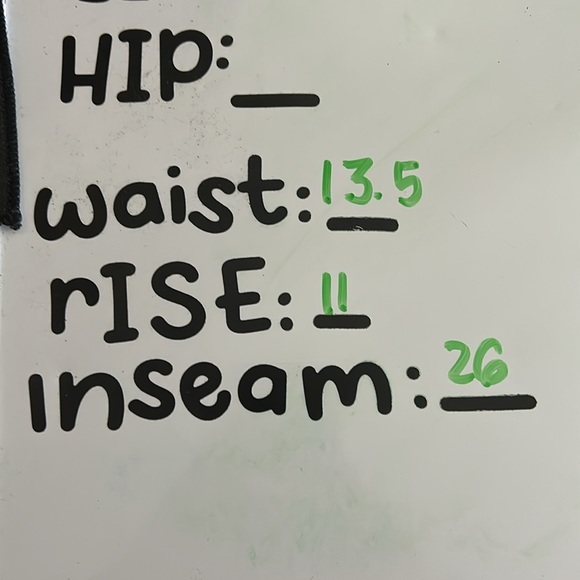 HIP:
waist: 13.5
rISE: 11
Inseam: 26